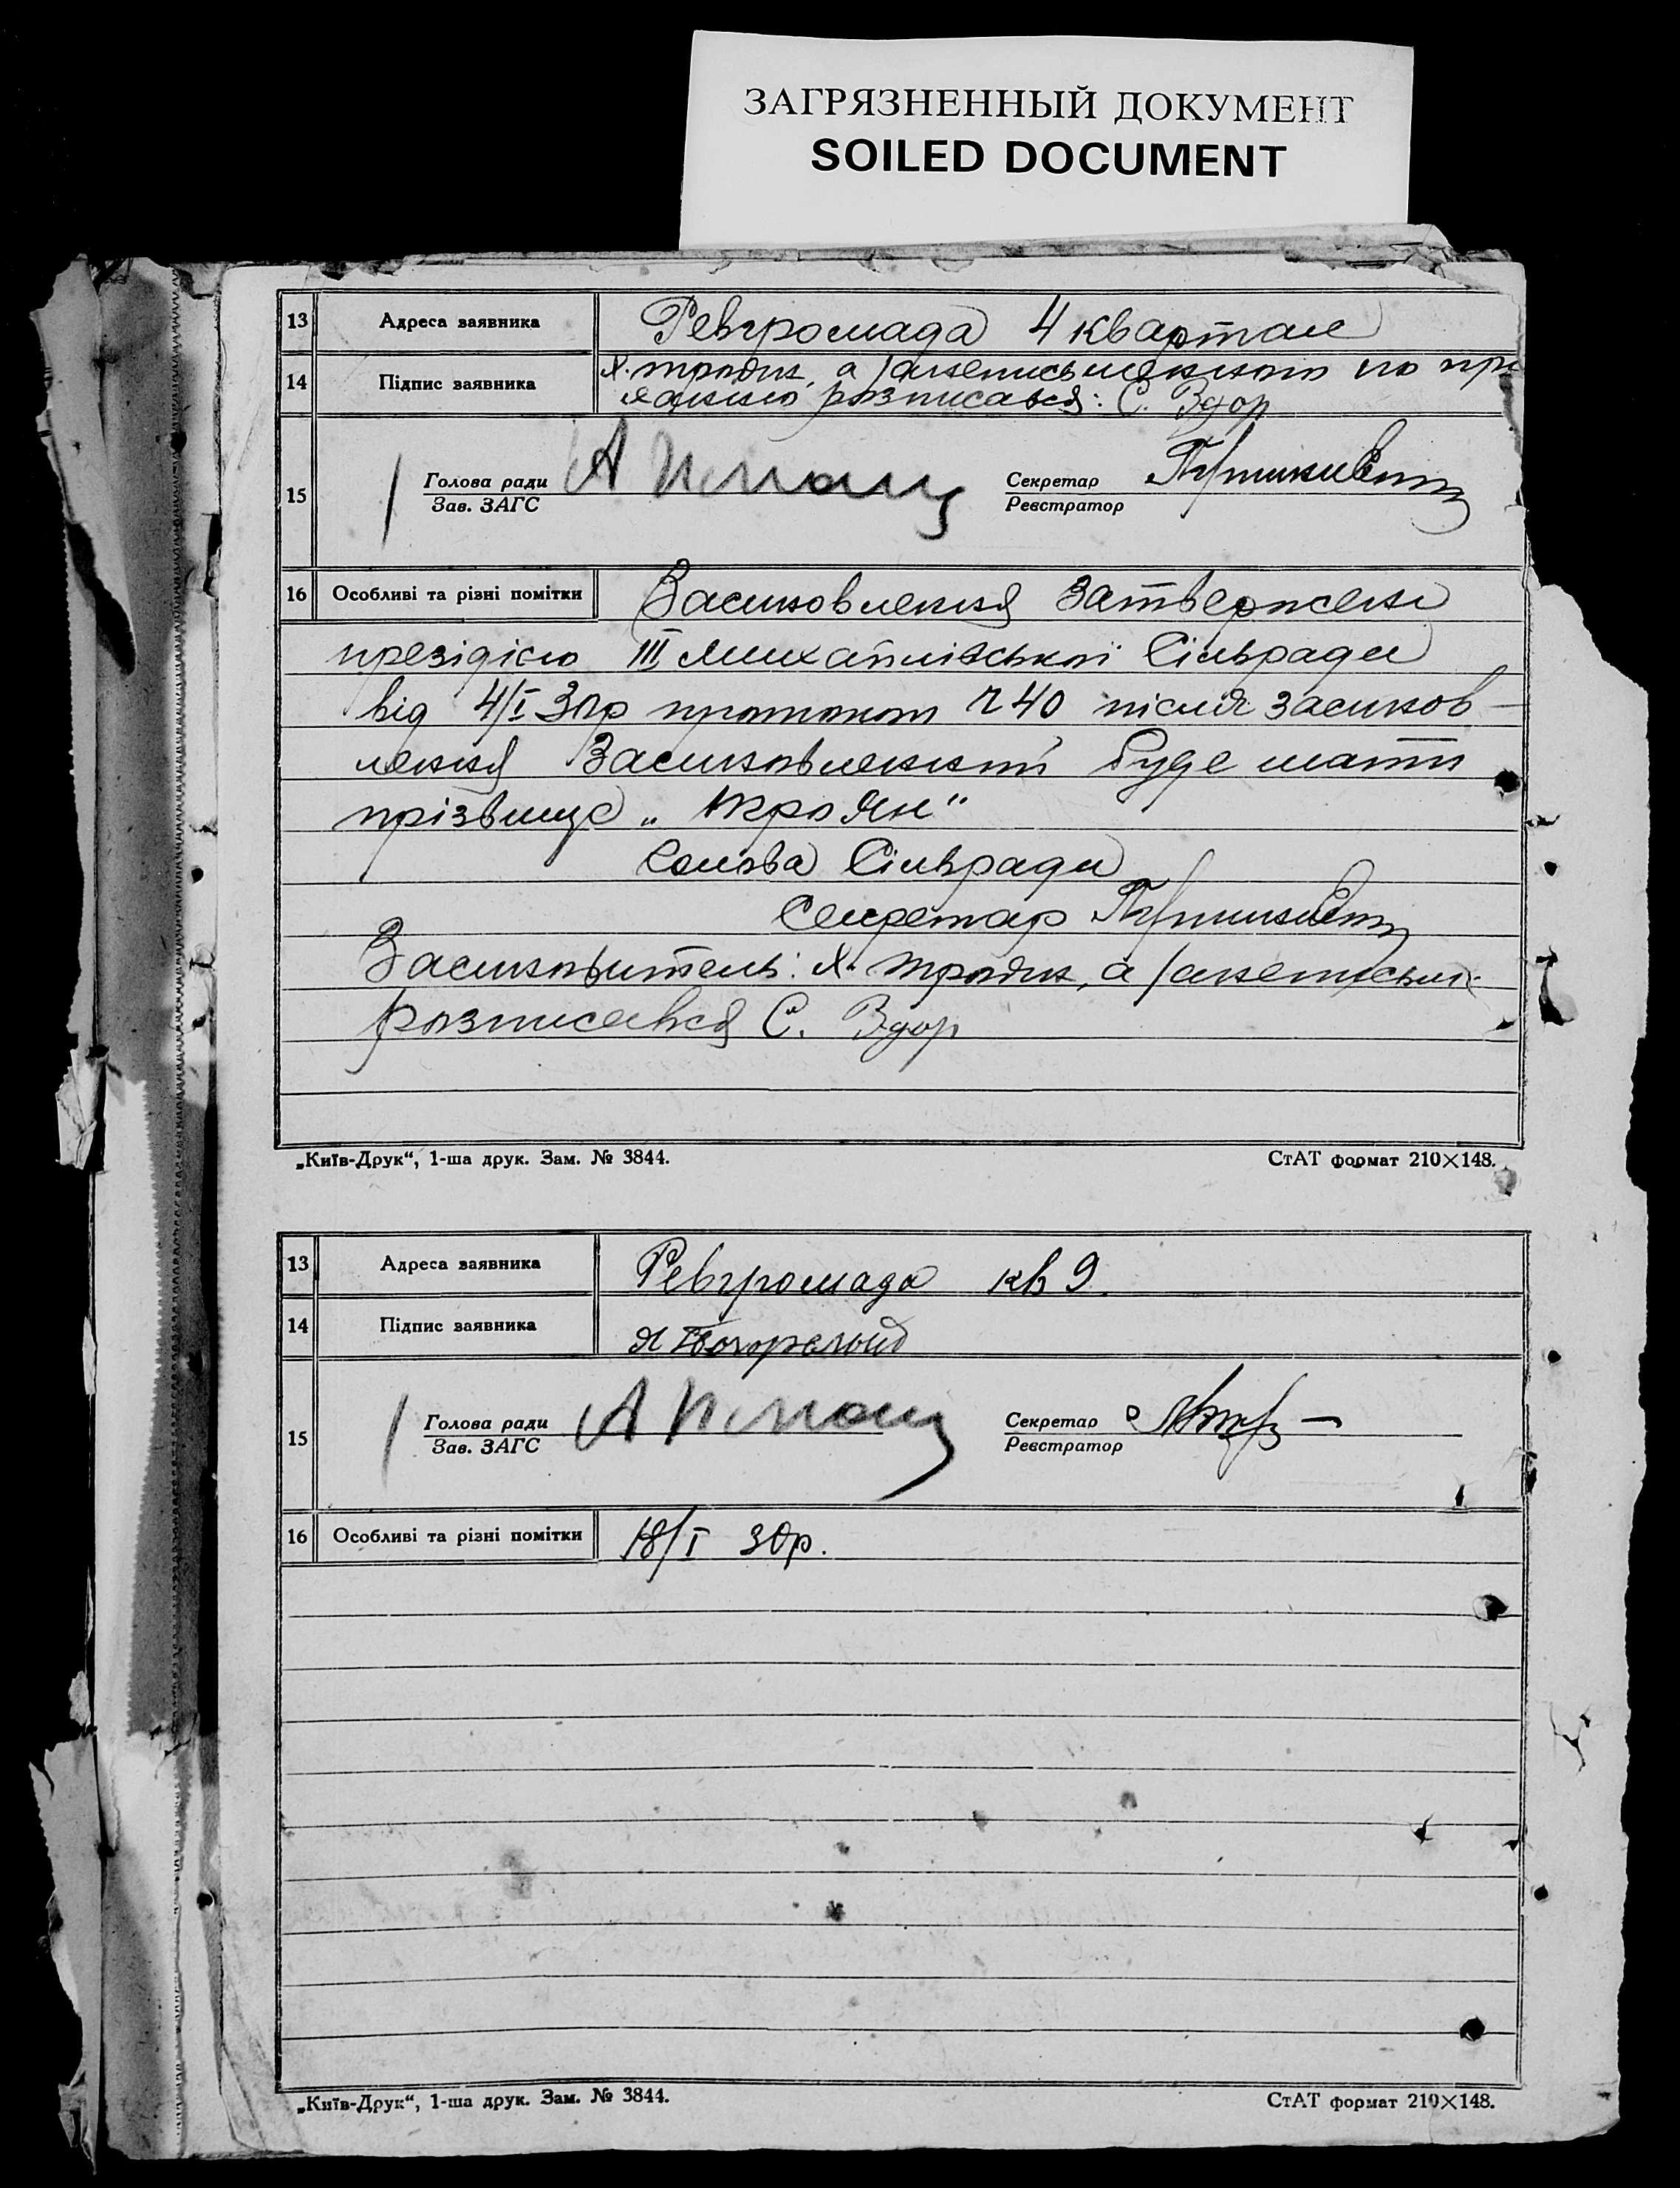 ЗАГРЯЗНЕННЫЙ ДОКУМЕНТ
SOILED DOCUMENT
13 Адреса заявника Ревгромада 4 квартал
14 Підпис заявника
розписався: С. Вдор
15 Голова ради Секретар
Зав. ЗАГС Реєстратор
16 Особливі та різні помітки Засиновлення затвержен
президією III Михайлівської Сільради
від 4/I 30р протокол ч 40 після засинов-
лення Засиновлений буде мати
прізвище
Голова Сільради
Секретар
Засиновитель:
розписався С. Вдор
„Київ-Друк“, 1-ша друк. Зам. № 3844. СтАТ формат 210×148.
13 Адреса заявника Ревгромада кв 9.
14 Підпис заявника
15 Голова ради Секретар
Зав. ЗАГС Реєстратор
16 Особливі та різні помітки 18/I 30р.
„Київ-Друк“, 1-ша друк. Зам. № 3844. СтАТ формат 210×148.